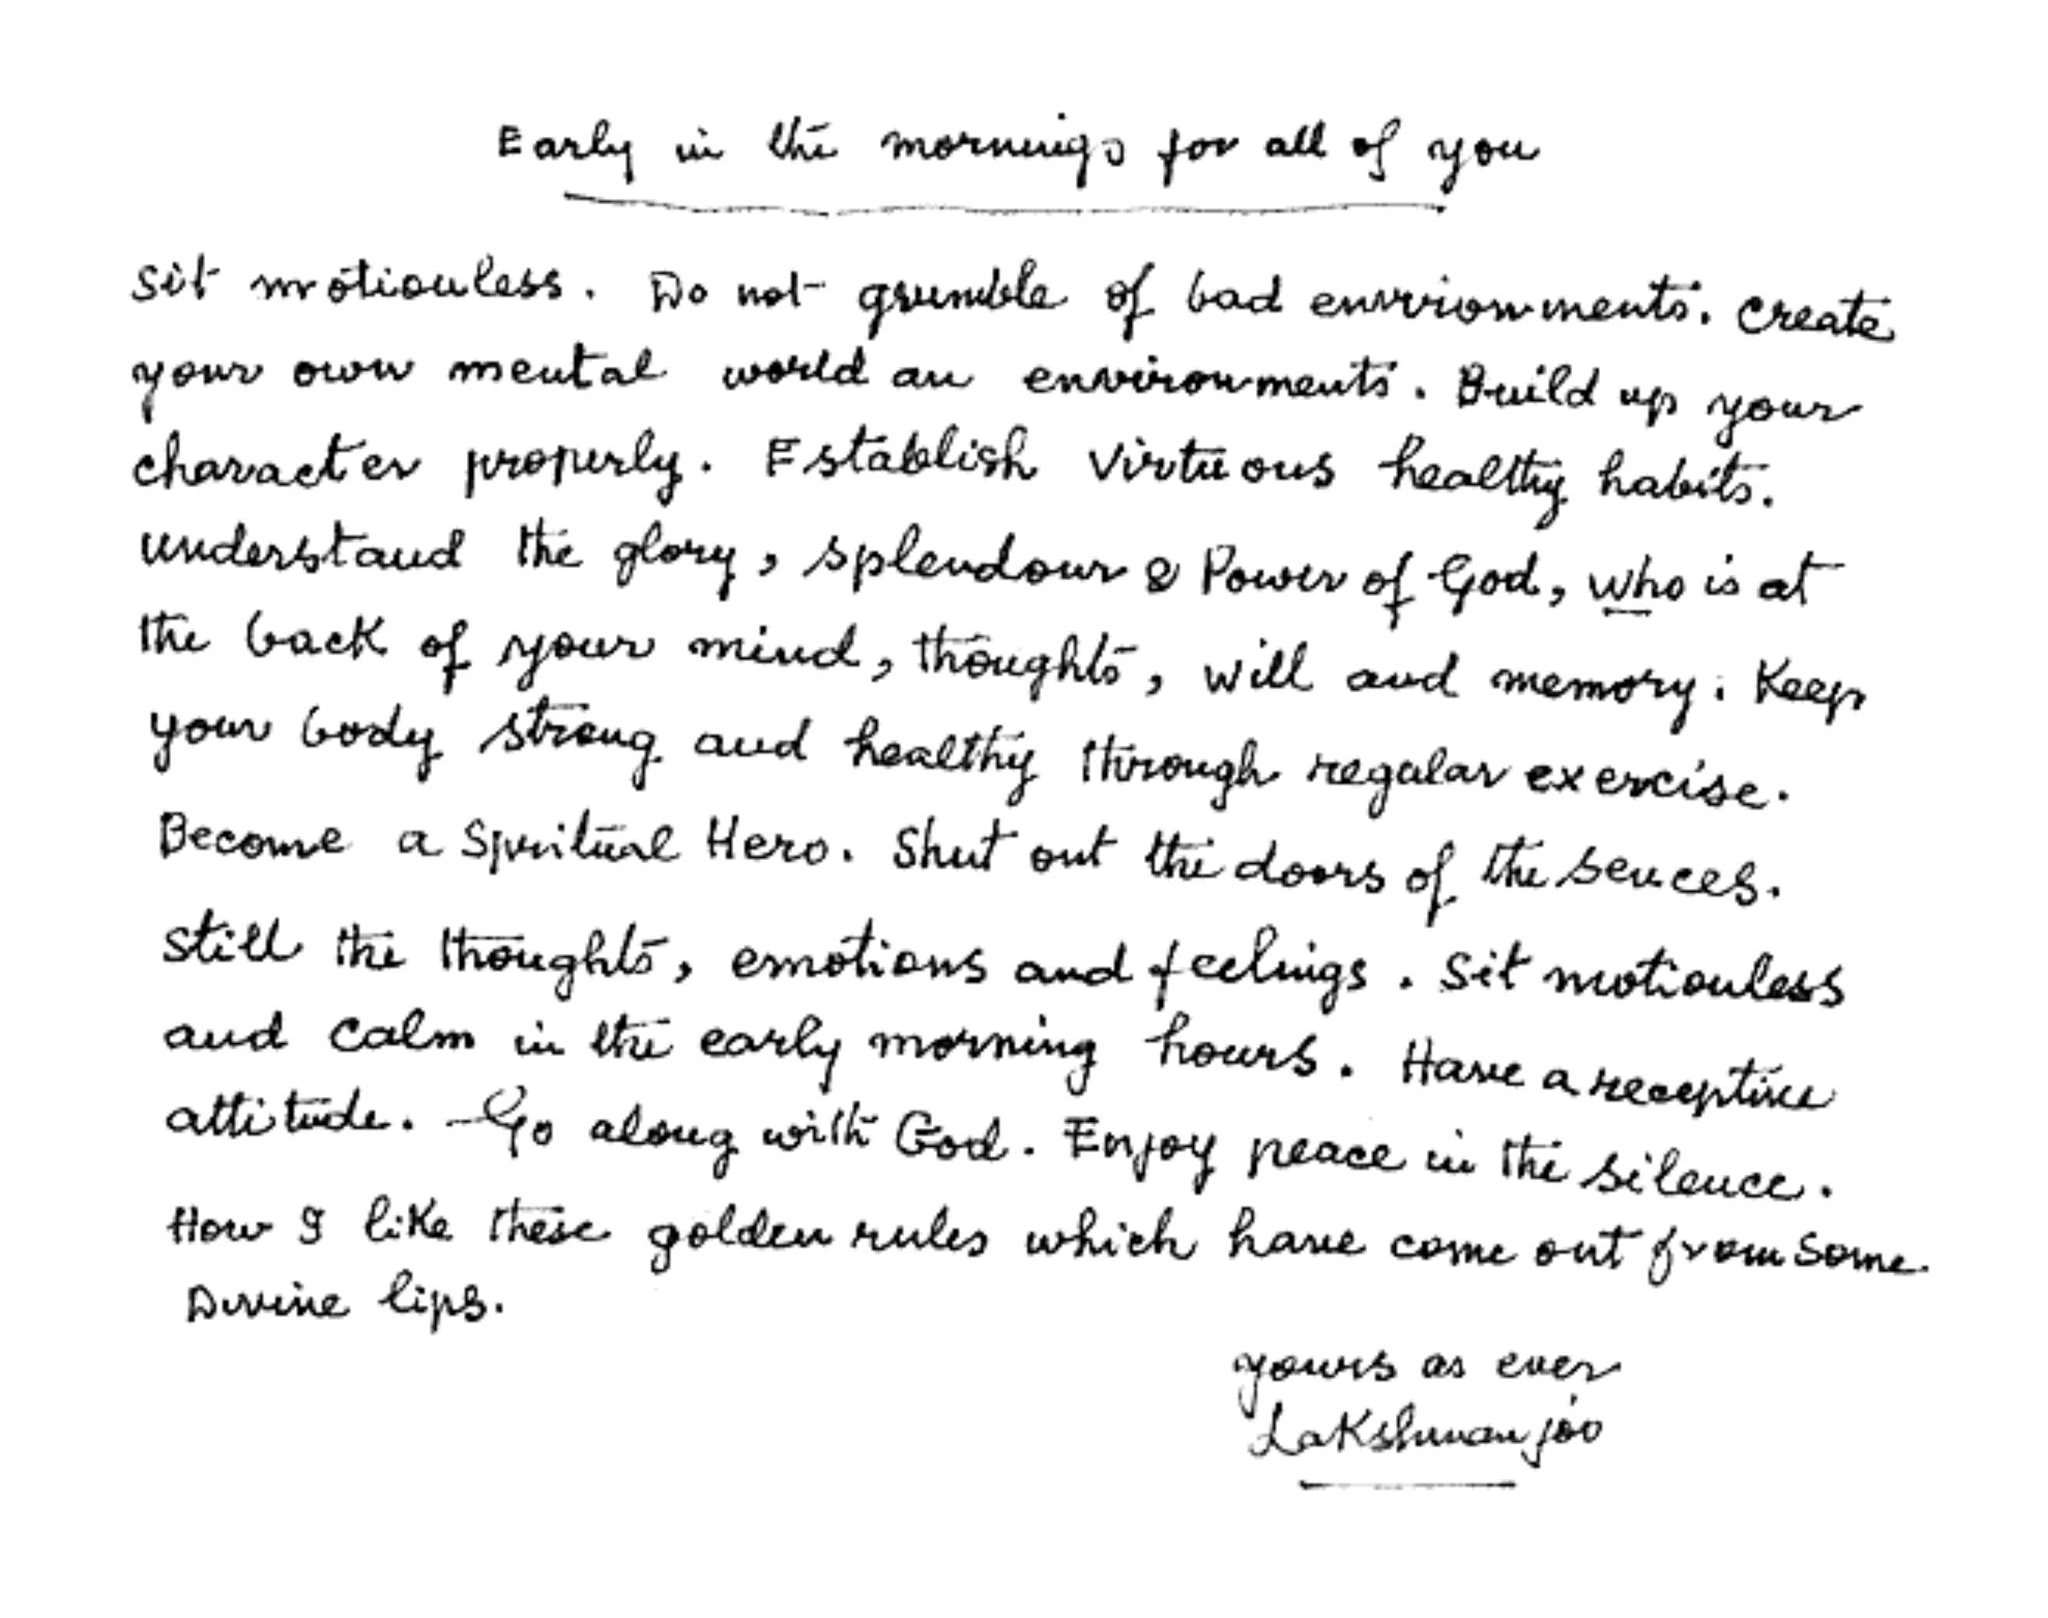 Early in the mornings for all of you
Sit motionless. Do not grumble of bad environments. Create
your own mental world an environments. Build up your
character properly. Establish virtuous healthy habits.
understand the glory, splendour & Power of God, who is at
the back of your mind, thoughts, will and memory. Keep
your body strong and healthy through regular exercise.
Become a Spritual Hero. Shut out the doors of the sences.
Still the thoughts, emotions and feelings. Sit motionless
and calm in the early morning hours. Have a receptive
attitude. Go along with God. Enjoy peace in the silence.
How I like these golden rules which have come out from some
Divine lips.
yours as ever
Lakshmanjoo